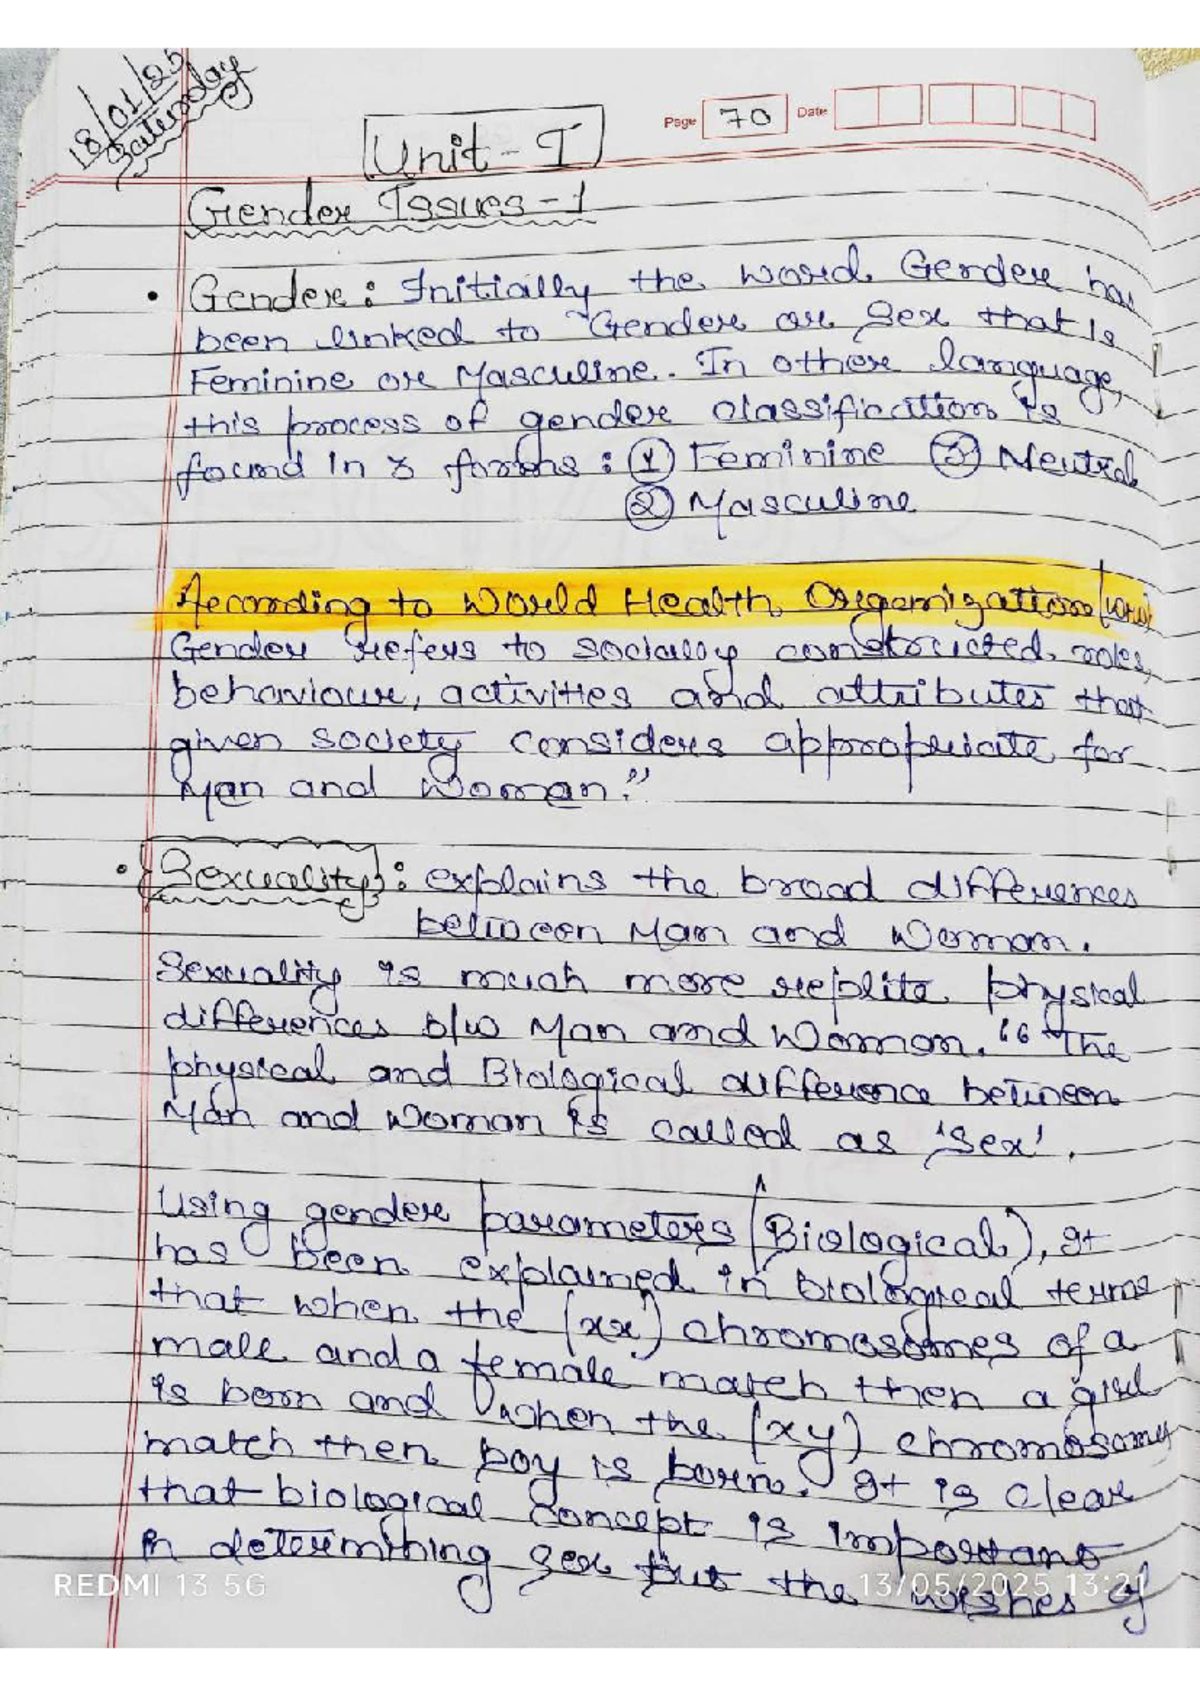 18/01/25
Saterday
Page 70 Date
Unit - I
Gender Issues - 1
• Gender : Initially the word Gender has
been linked to "Gender or Sex that is
Feminine or Masculine. In other language,
this process of gender classification is
found in 3 forms : ① Feminine ③ Neutral
② Masculine
According to World Health Organization (WHO)
Gender refers to socially constructed roles,
behaviour, activities and attributes that
given society considers appropriate for
Man and Woman."
• Sexuality : explains the broad differences
between Man and Woman.
Sexuality is much more replite physical
differences b/w Man and Woman. "The
physical and Biological difference between
Man and Woman is called as 'Sex'.
Using gender parameters (Biological), It
has been explained in biological terms
that when the (xx) chromosomes of a
male and a female match then a girl
is born and when the (xy) chromosomes
match then boy is born. It is clear
that biological concept is important
in determining sex but the wishes of
REDMI 13 5G 13/05/2025 13:21